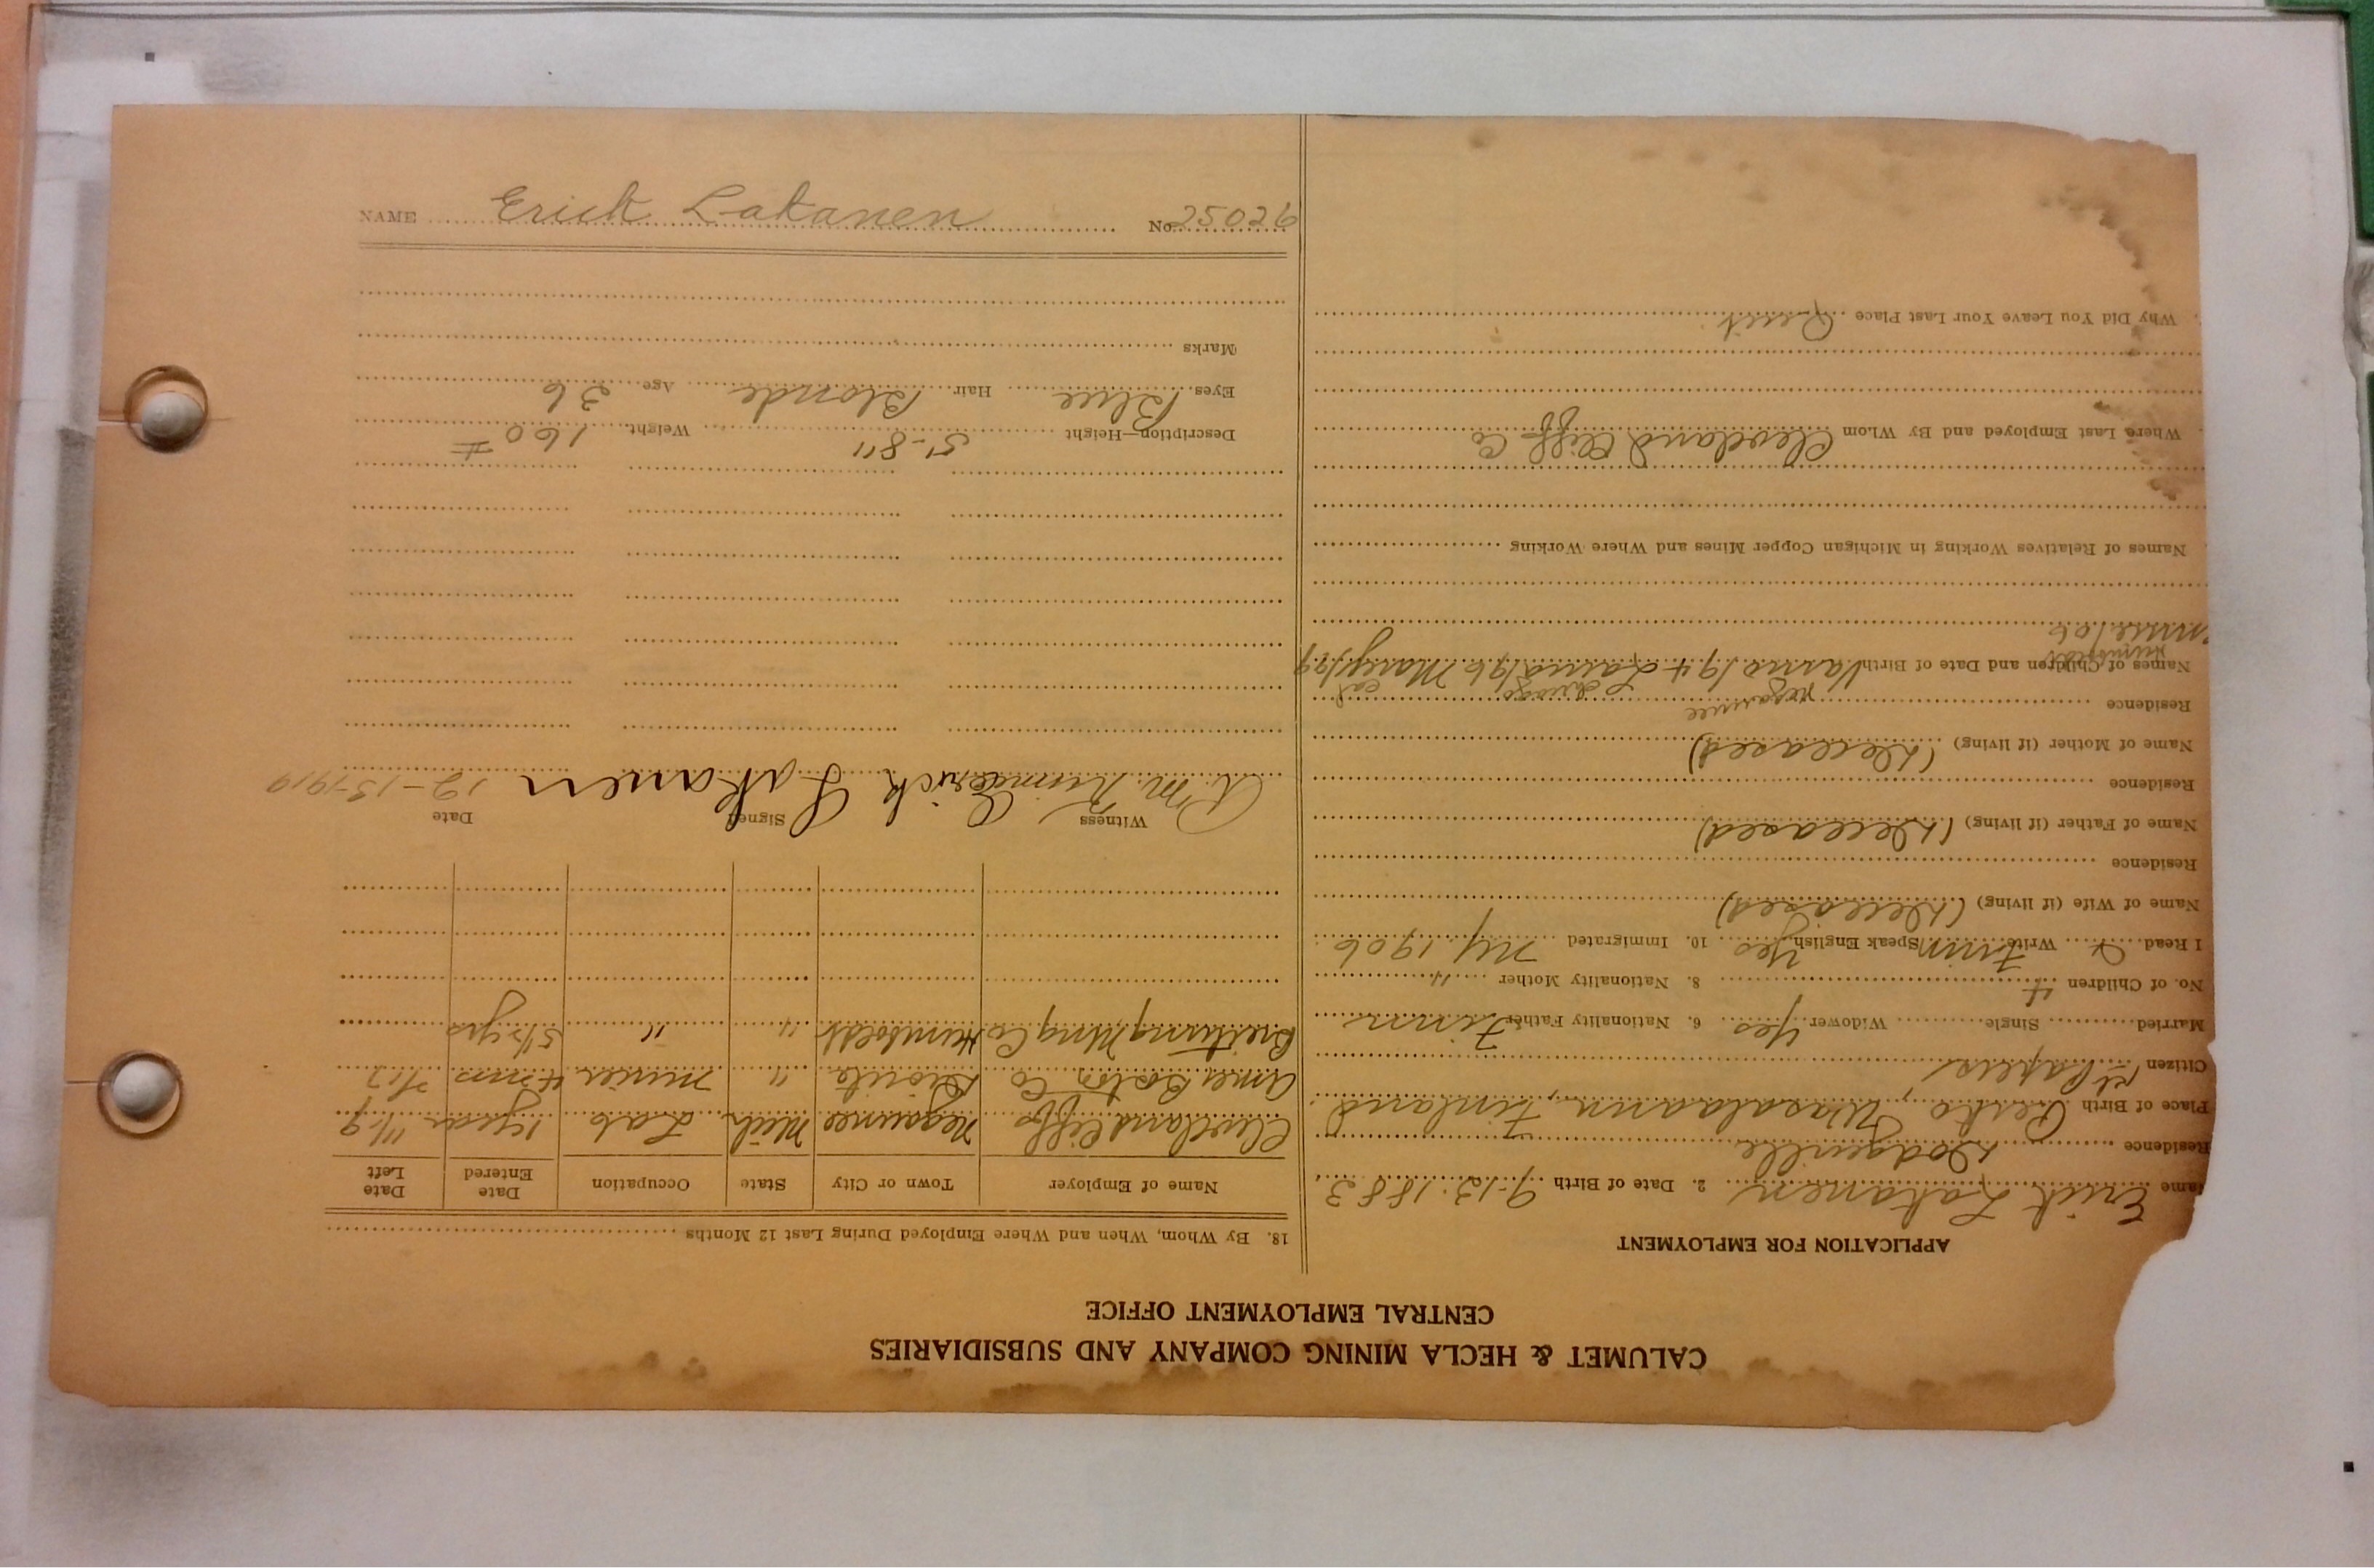 CALUMET & HECLA MINING COMPANY AND SUBSIDIARIES
CENTRAL EMPLOYMENT OFFICE
APPLICATION FOR EMPLOYMENT
ame Erick Lakanen 2. Date of Birth 9-12-1883
Residence Dodgeville
Place of Birth Perho, Wasalaann, Finland
Citizen 1st Papers
Married Single Widower Yes 6. Nationality Father Finn
No. of Children 4 8. Nationality Mother "
I Read & Write Finn Speak English Yes 10. Immigrated NY 1906
Name of Wife (if living) (Deceased)
Residence
Name of Father (if living) (Deceased)
Residence
Name of Mother (if living) (Deceased)
Residence Negaunee Chicago Cal
Names of Children and Date of Birth
Humboldt
Names of Relatives Working in Michigan Copper Mines and Where Working
Where Last Employed and By Whom Cleveland Cliff Co
Why Did You Leave Your Last Place Quit
18. By Whom, When and Where Employed During Last 12 Months
Name of Employer Town or City State Occupation Date Entered Date Left
Cleveland Cliffs Negaunee Mich Lab 1 year 11/19
Amer Boston Co Diorite " miner 4 mos
Breitung Mng Co Humboldt " " 5 1/2 yrs
Witness Signed Date
A. M. Erick Lakanen 12-15-1919
Description—Height 5'-8" Weight 160 #
Eyes Blue Hair Blonde Age 36
Marks
NAME Erick Lakanen No. 25026